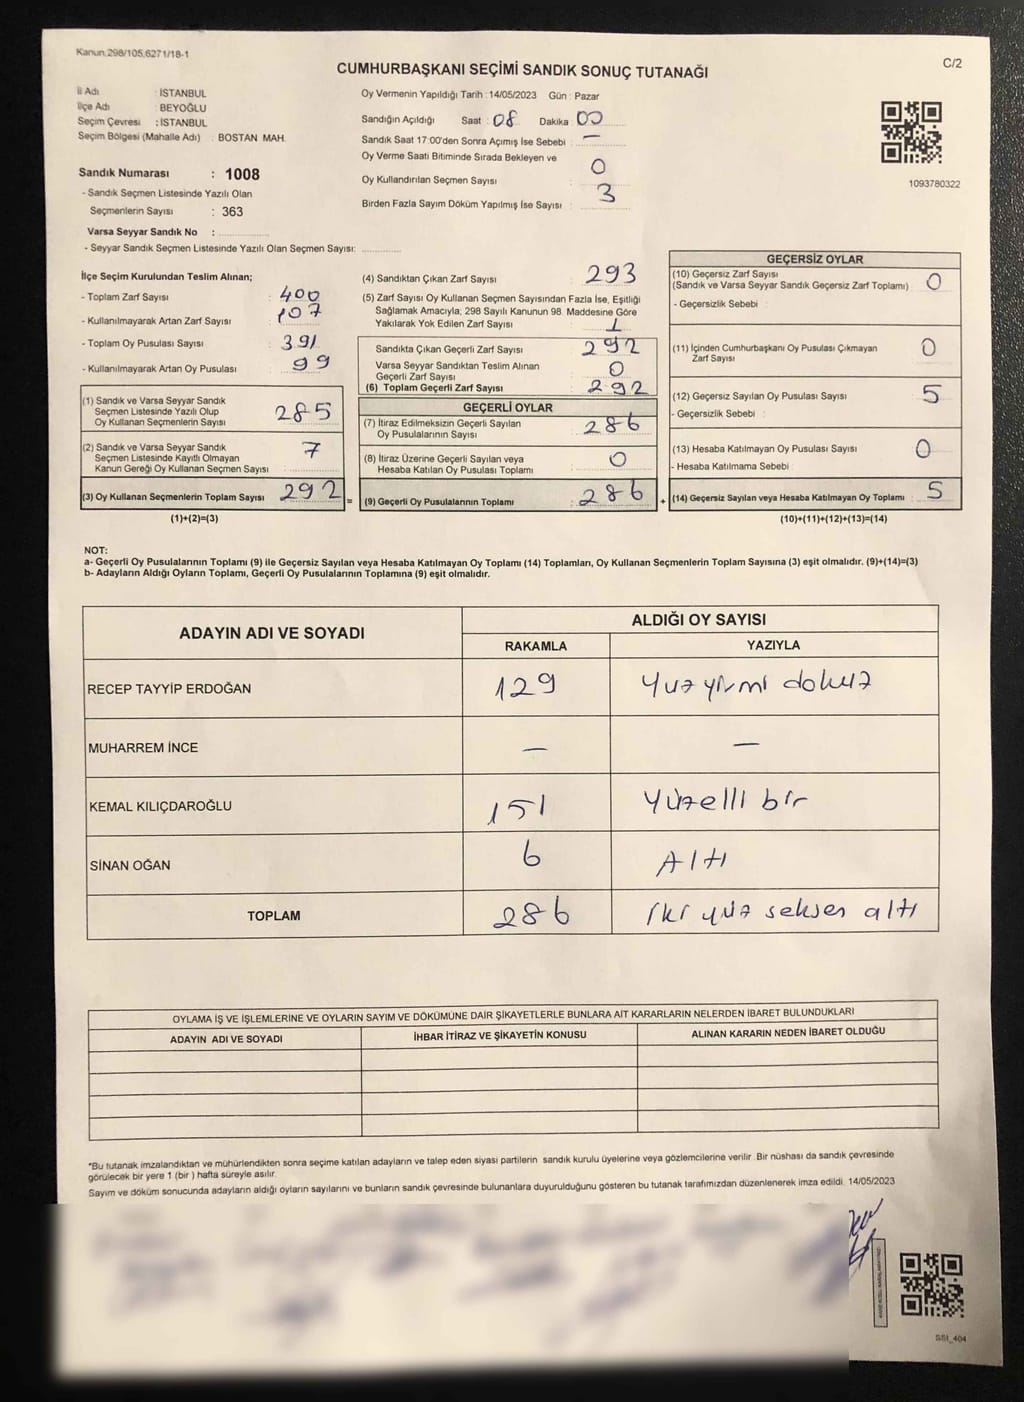 Kanun.298/105,6271/18-1
C/2
CUMHURBAŞKANI SEÇİMİ SANDIK SONUÇ TUTANAĞI
İl Adı : İSTANBUL
İlçe Adı : BEYOĞLU
Seçim Çevresi : İSTANBUL
Seçim Bölgesi (Mahalle Adı) : BOSTAN MAH.
Sandık Numarası : 1008
- Sandık Seçmen Listesinde Yazılı Olan
Seçmenlerin Sayısı : 363
Varsa Seyyar Sandık No :
- Seyyar Sandık Seçmen Listesinde Yazılı Olan Seçmen Sayısı:
Oy Vermenin Yapıldığı Tarih : 14/05/2023 Gün : Pazar
Sandığın Açıldığı Saat : 08 Dakika 00
Sandık Saat 17:00'den Sonra Açımış İse Sebebi : —
Oy Verme Saati Bitiminde Sırada Bekleyen ve
Oy Kullandırılan Seçmen Sayısı : 0
Birden Fazla Sayım Döküm Yapılmış İse Sayısı : 3
1093780322
İlçe Seçim Kurulundan Teslim Alınan;
- Toplam Zarf Sayısı : 400
- Kullanılmayarak Artan Zarf Sayısı : 107
- Toplam Oy Pusulası Sayısı : 391
- Kullanılmayarak Artan Oy Pusulası : 99
(1) Sandık ve Varsa Seyyar Sandık
Seçmen Listesinde Yazılı Olup
Oy Kullanan Seçmenlerin Sayısı : 285
(2) Sandık ve Varsa Seyyar Sandık
Seçmen Listesinde Kayıtlı Olmayan
Kanun Gereği Oy Kullanan Seçmen Sayısı : 7
(3) Oy Kullanan Seçmenlerin Toplam Sayısı : 292
(1)+(2)=(3)
(4) Sandıktan Çıkan Zarf Sayısı : 293
(5) Zarf Sayısı Oy Kullanan Seçmen Sayısından Fazla İse, Eşitliği
Sağlamak Amacıyla; 298 Sayılı Kanunun 98. Maddesine Göre
Yakılarak Yok Edilen Zarf Sayısı : 1
Sandıkta Çıkan Geçerli Zarf Sayısı : 292
Varsa Seyyar Sandıktan Teslim Alınan
Geçerli Zarf Sayısı : 0
(6) Toplam Geçerli Zarf Sayısı : 292
GEÇERLİ OYLAR
(7) İtiraz Edilmeksizin Geçerli Sayılan
Oy Pusulalarının Sayısı : 286
(8) İtiraz Üzerine Geçerli Sayılan veya
Hesaba Katılan Oy Pusulası Toplamı : 0
= (9) Geçerli Oy Pusulalarının Toplamı : 286
GEÇERSİZ OYLAR
(10) Geçersiz Zarf Sayısı
(Sandık ve Varsa Seyyar Sandık Geçersiz Zarf Toplamı) : 0
- Geçersizlik Sebebi :
(11) İçinden Cumhurbaşkanı Oy Pusulası Çıkmayan
Zarf Sayısı : 0
(12) Geçersiz Sayılan Oy Pusulası Sayısı : 5
- Geçersizlik Sebebi :
(13) Hesaba Katılmayan Oy Pusulası Sayısı : 0
- Hesaba Katılmama Sebebi :
+ (14) Geçersiz Sayılan veya Hesaba Katılmayan Oy Toplamı : 5
(10)+(11)+(12)+(13)=(14)
NOT:
a- Geçerli Oy Pusulalarının Toplamı (9) ile Geçersiz Sayılan veya Hesaba Katılmayan Oy Toplamı (14) Toplamları, Oy Kullanan Seçmenlerin Toplam Sayısına (3) eşit olmalıdır. (9)+(14)=(3)
b- Adayların Aldığı Oyların Toplamı, Geçerli Oy Pusulalarının Toplamına (9) eşit olmalıdır.
ADAYIN ADI VE SOYADI
ALDIĞI OY SAYISI
RAKAMLA YAZIYLA
RECEP TAYYİP ERDOĞAN 129 Yuz yirmi dokuz
MUHARREM İNCE — —
KEMAL KILIÇDAROĞLU 151 Yüzelli bir
SİNAN OĞAN 6 Altı
TOPLAM 286 iki yüz seksen altı
OYLAMA İŞ VE İŞLEMLERİNE VE OYLARIN SAYIM VE DÖKÜMÜNE DAİR ŞİKAYETLERLE BUNLARA AİT KARARLARIN NELERDEN İBARET BULUNDUKLARI
ADAYIN ADI VE SOYADI İHBAR İTİRAZ VE ŞİKAYETİN KONUSU ALINAN KARARIN NEDEN İBARET OLDUĞU
*Bu tutanak imzalandıktan ve mühürlendikten sonra seçime katılan adayların ve talep eden siyasi partilerin sandık kurulu üyelerine veya gözlemcilerine verilir. Bir nüshası da sandık çevresinde
görülecek bir yere 1 (bir ) hafta süreyle asılır.
Sayım ve döküm sonucunda adayların aldığı oyların sayılarını ve bunların sandık çevresinde bulunanlara duyurulduğunu gösteren bu tutanak tarafımızdan düzenlenerek imza edildi. 14/05/2023
SSI_404